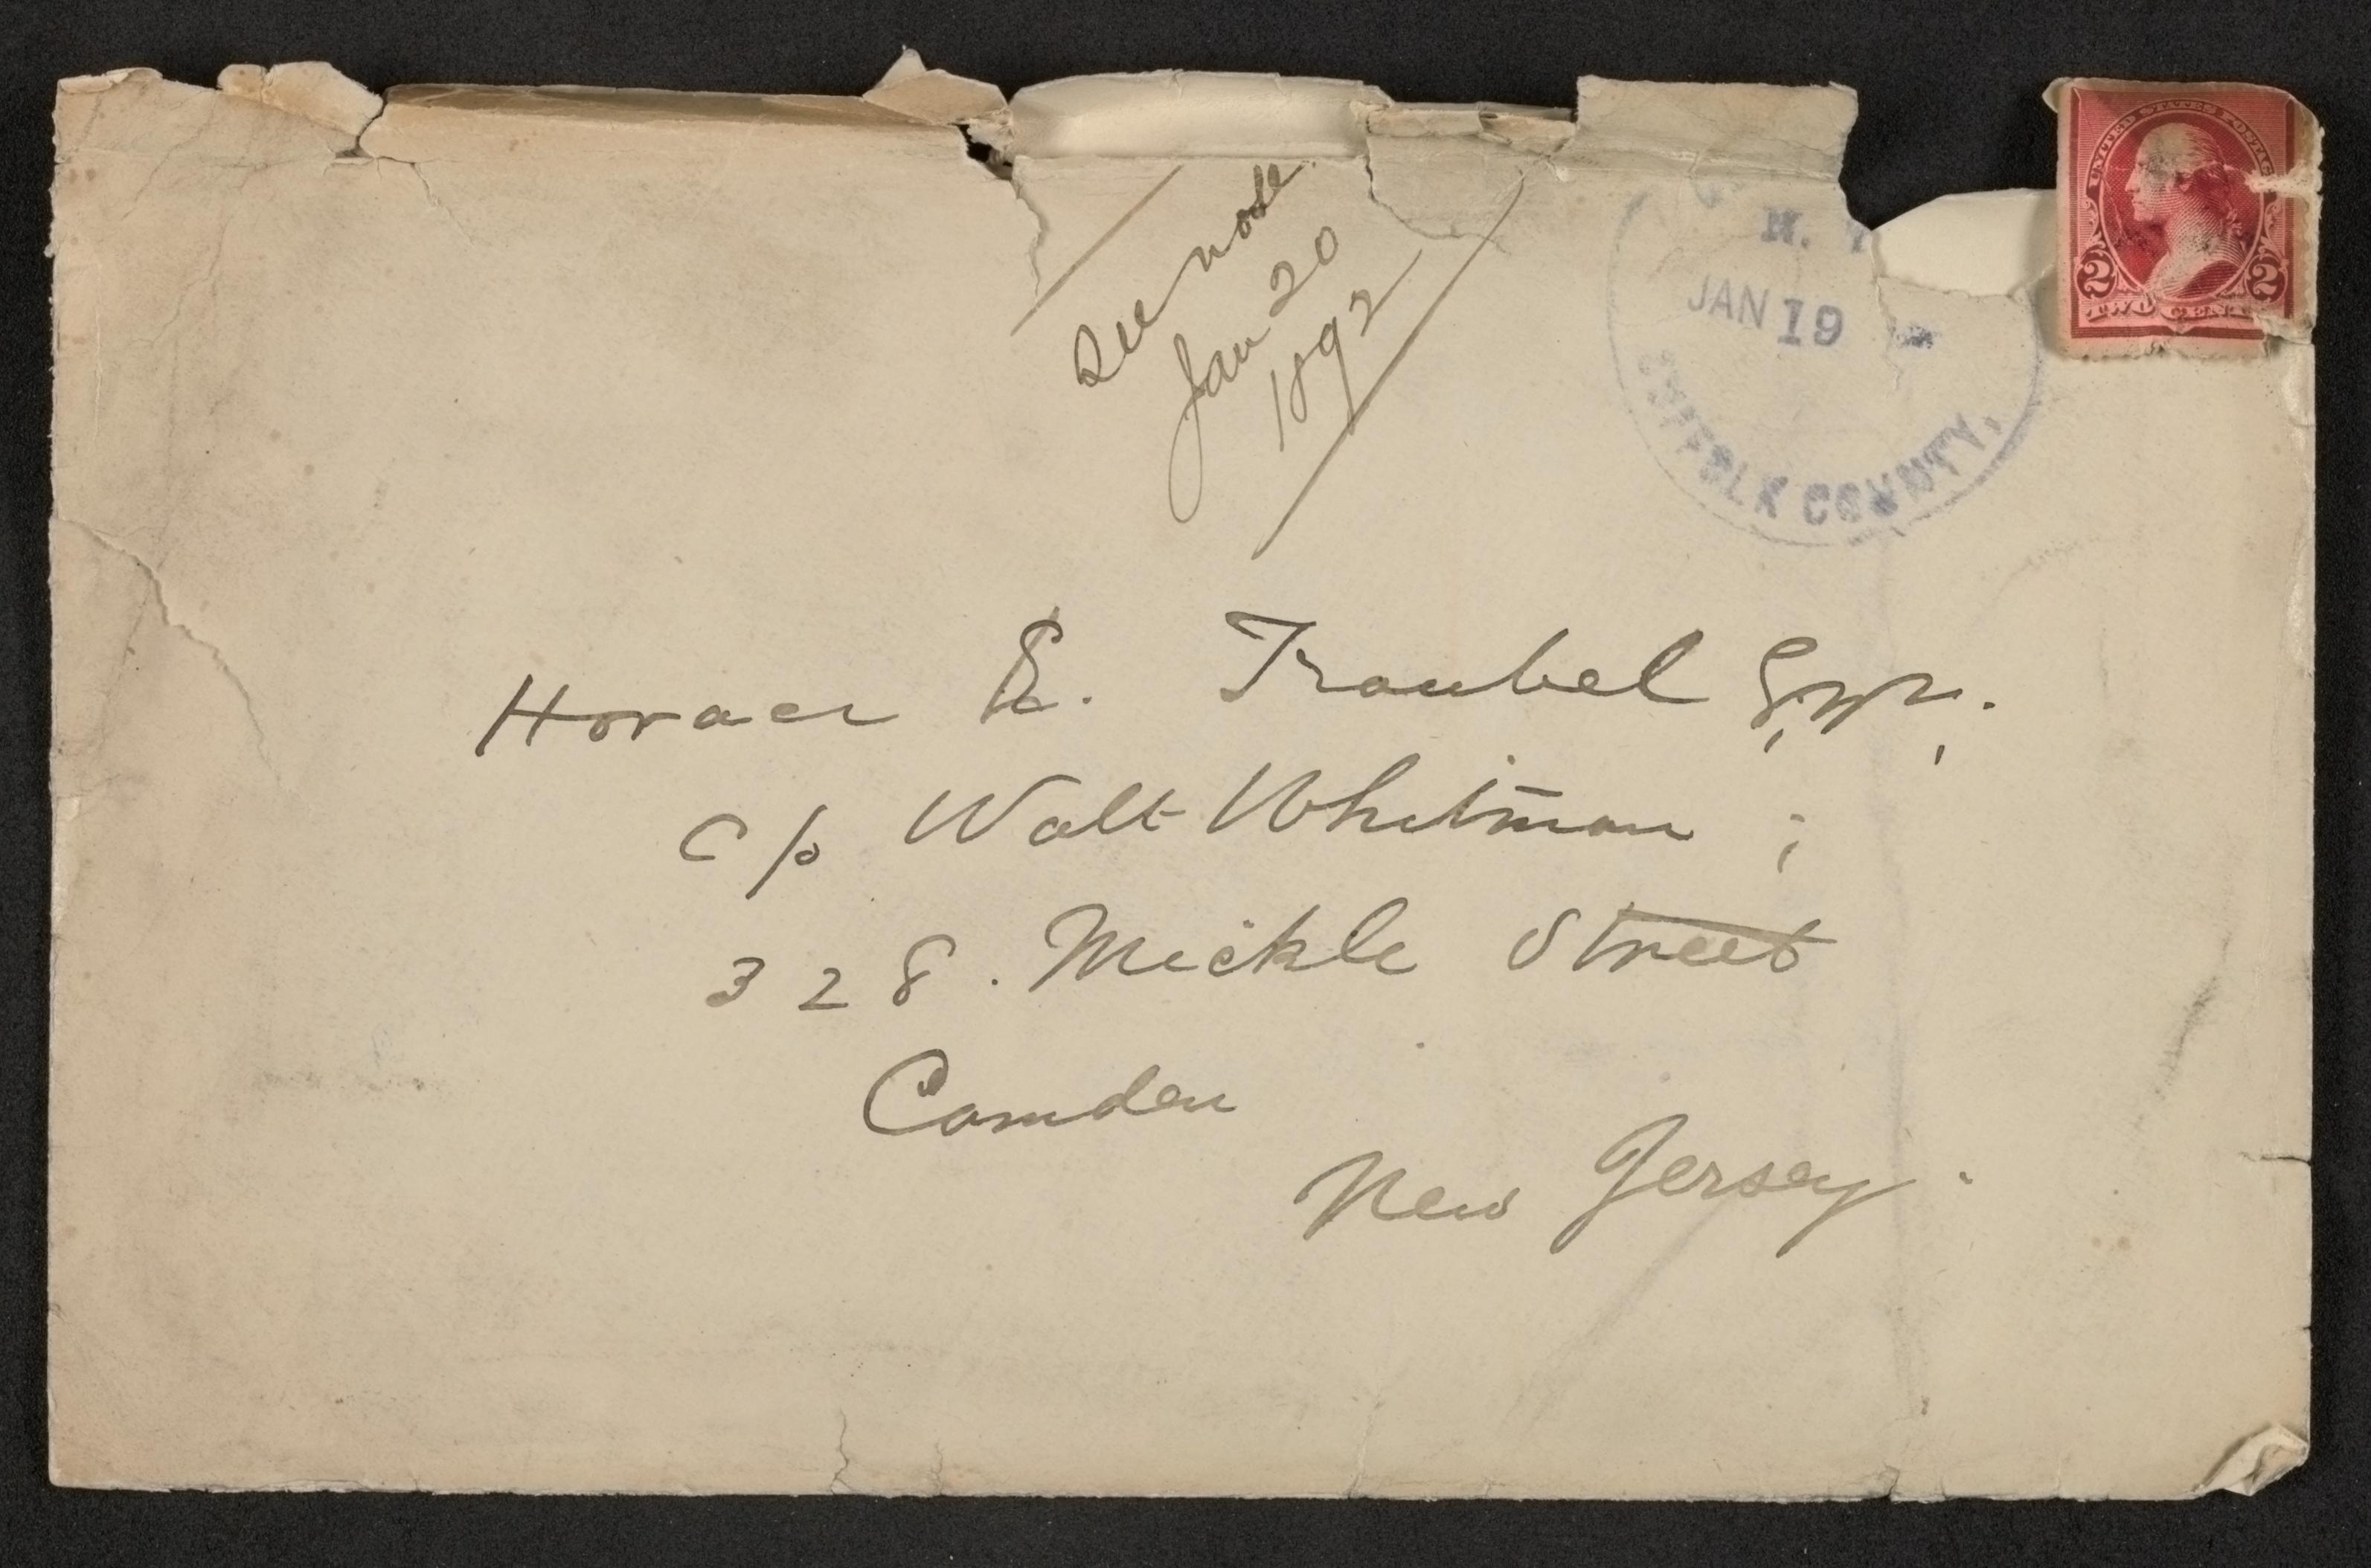 see notes
Jan 20
1892
N. Y
JAN 19
SUFFOLK COUNTY,
UNITED STATES POSTAGE
2 2
TWO CENTS
Horace E. Traubel Esqr.
c/o Walt Whitman ;
328. Mickle Street
Camden
New Jersey.